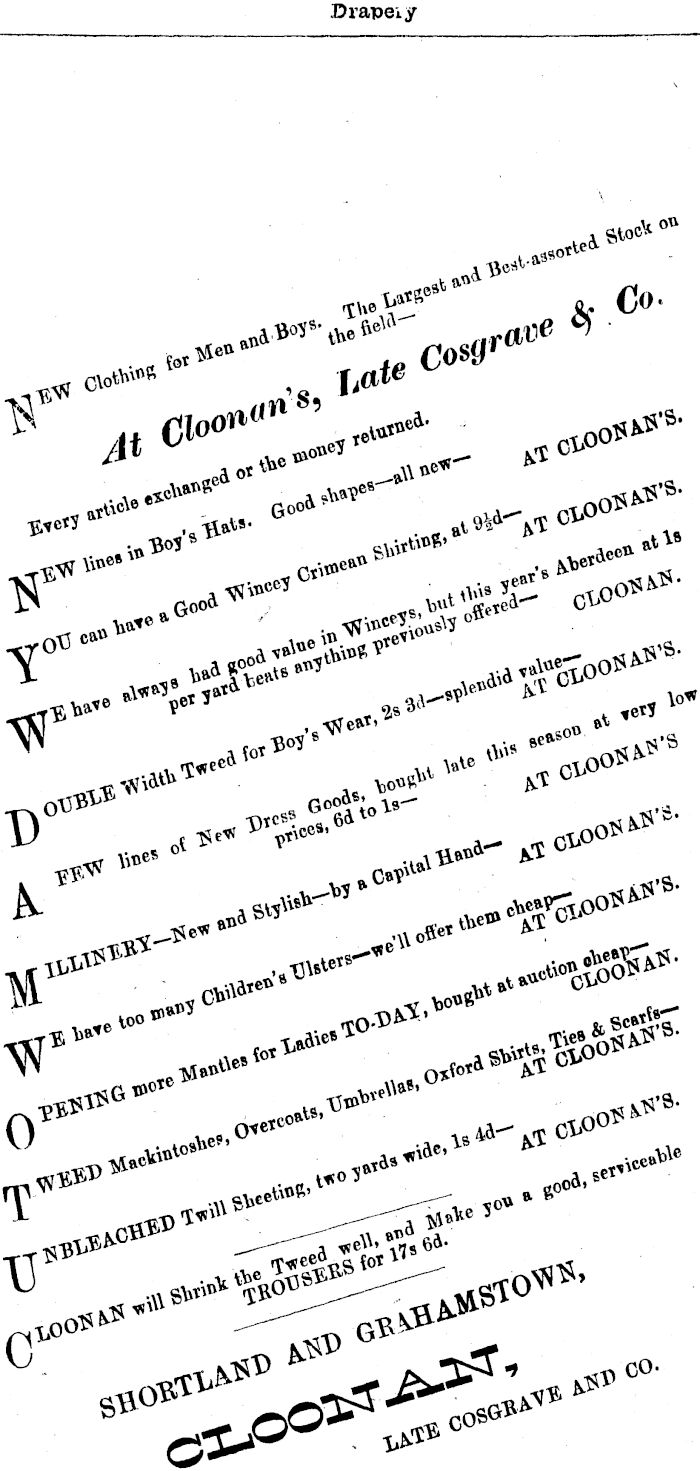 Drapery
NEW Clothing for Men and Boys. The Largest and Best-assorted Stock on
the field—
At Cloonan's, Late Cosgrave & Co.
Every article exchanged or the money returned.
NEW lines in Boy's Hats. Good shapes—all new—
AT CLOONAN'S.
YOU can have a Good Wincey Crimean Shirting, at 9½d—
AT CLOONAN'S.
WE have always had good value in Winceys, but this year's Aberdeen at 1s
per yard beats anything previously offered—
CLOONAN.
DOUBLE Width Tweed for Boy's Wear, 2s 3d—splendid value—
AT CLOONAN'S.
A FEW lines of New Dress Goods, bought late this season at very low
prices, 6d to 1s—
AT CLOONAN'S
MILLINERY—New and Stylish—by a Capital Hand—
AT CLOONAN'S.
WE have too many Children's Ulsters—we'll offer them cheap—
AT CLOONAN'S.
OPENING more Mantles for Ladies TO-DAY, bought at auction cheap—
CLOONAN.
TWEED Mackintoshes, Overcoats, Umbrellas, Oxford Shirts, Ties & Scarfs—
AT CLOONAN'S.
UNBLEACHED Twill Sheeting, two yards wide, 1s 4d—
AT CLOONAN'S.
CLOONAN will Shrink the Tweed well, and Make you a good, serviceable
TROUSERS for 17s 6d.
SHORTLAND AND GRAHAMSTOWN,
CLOONAN,
LATE COSGRAVE AND CO.